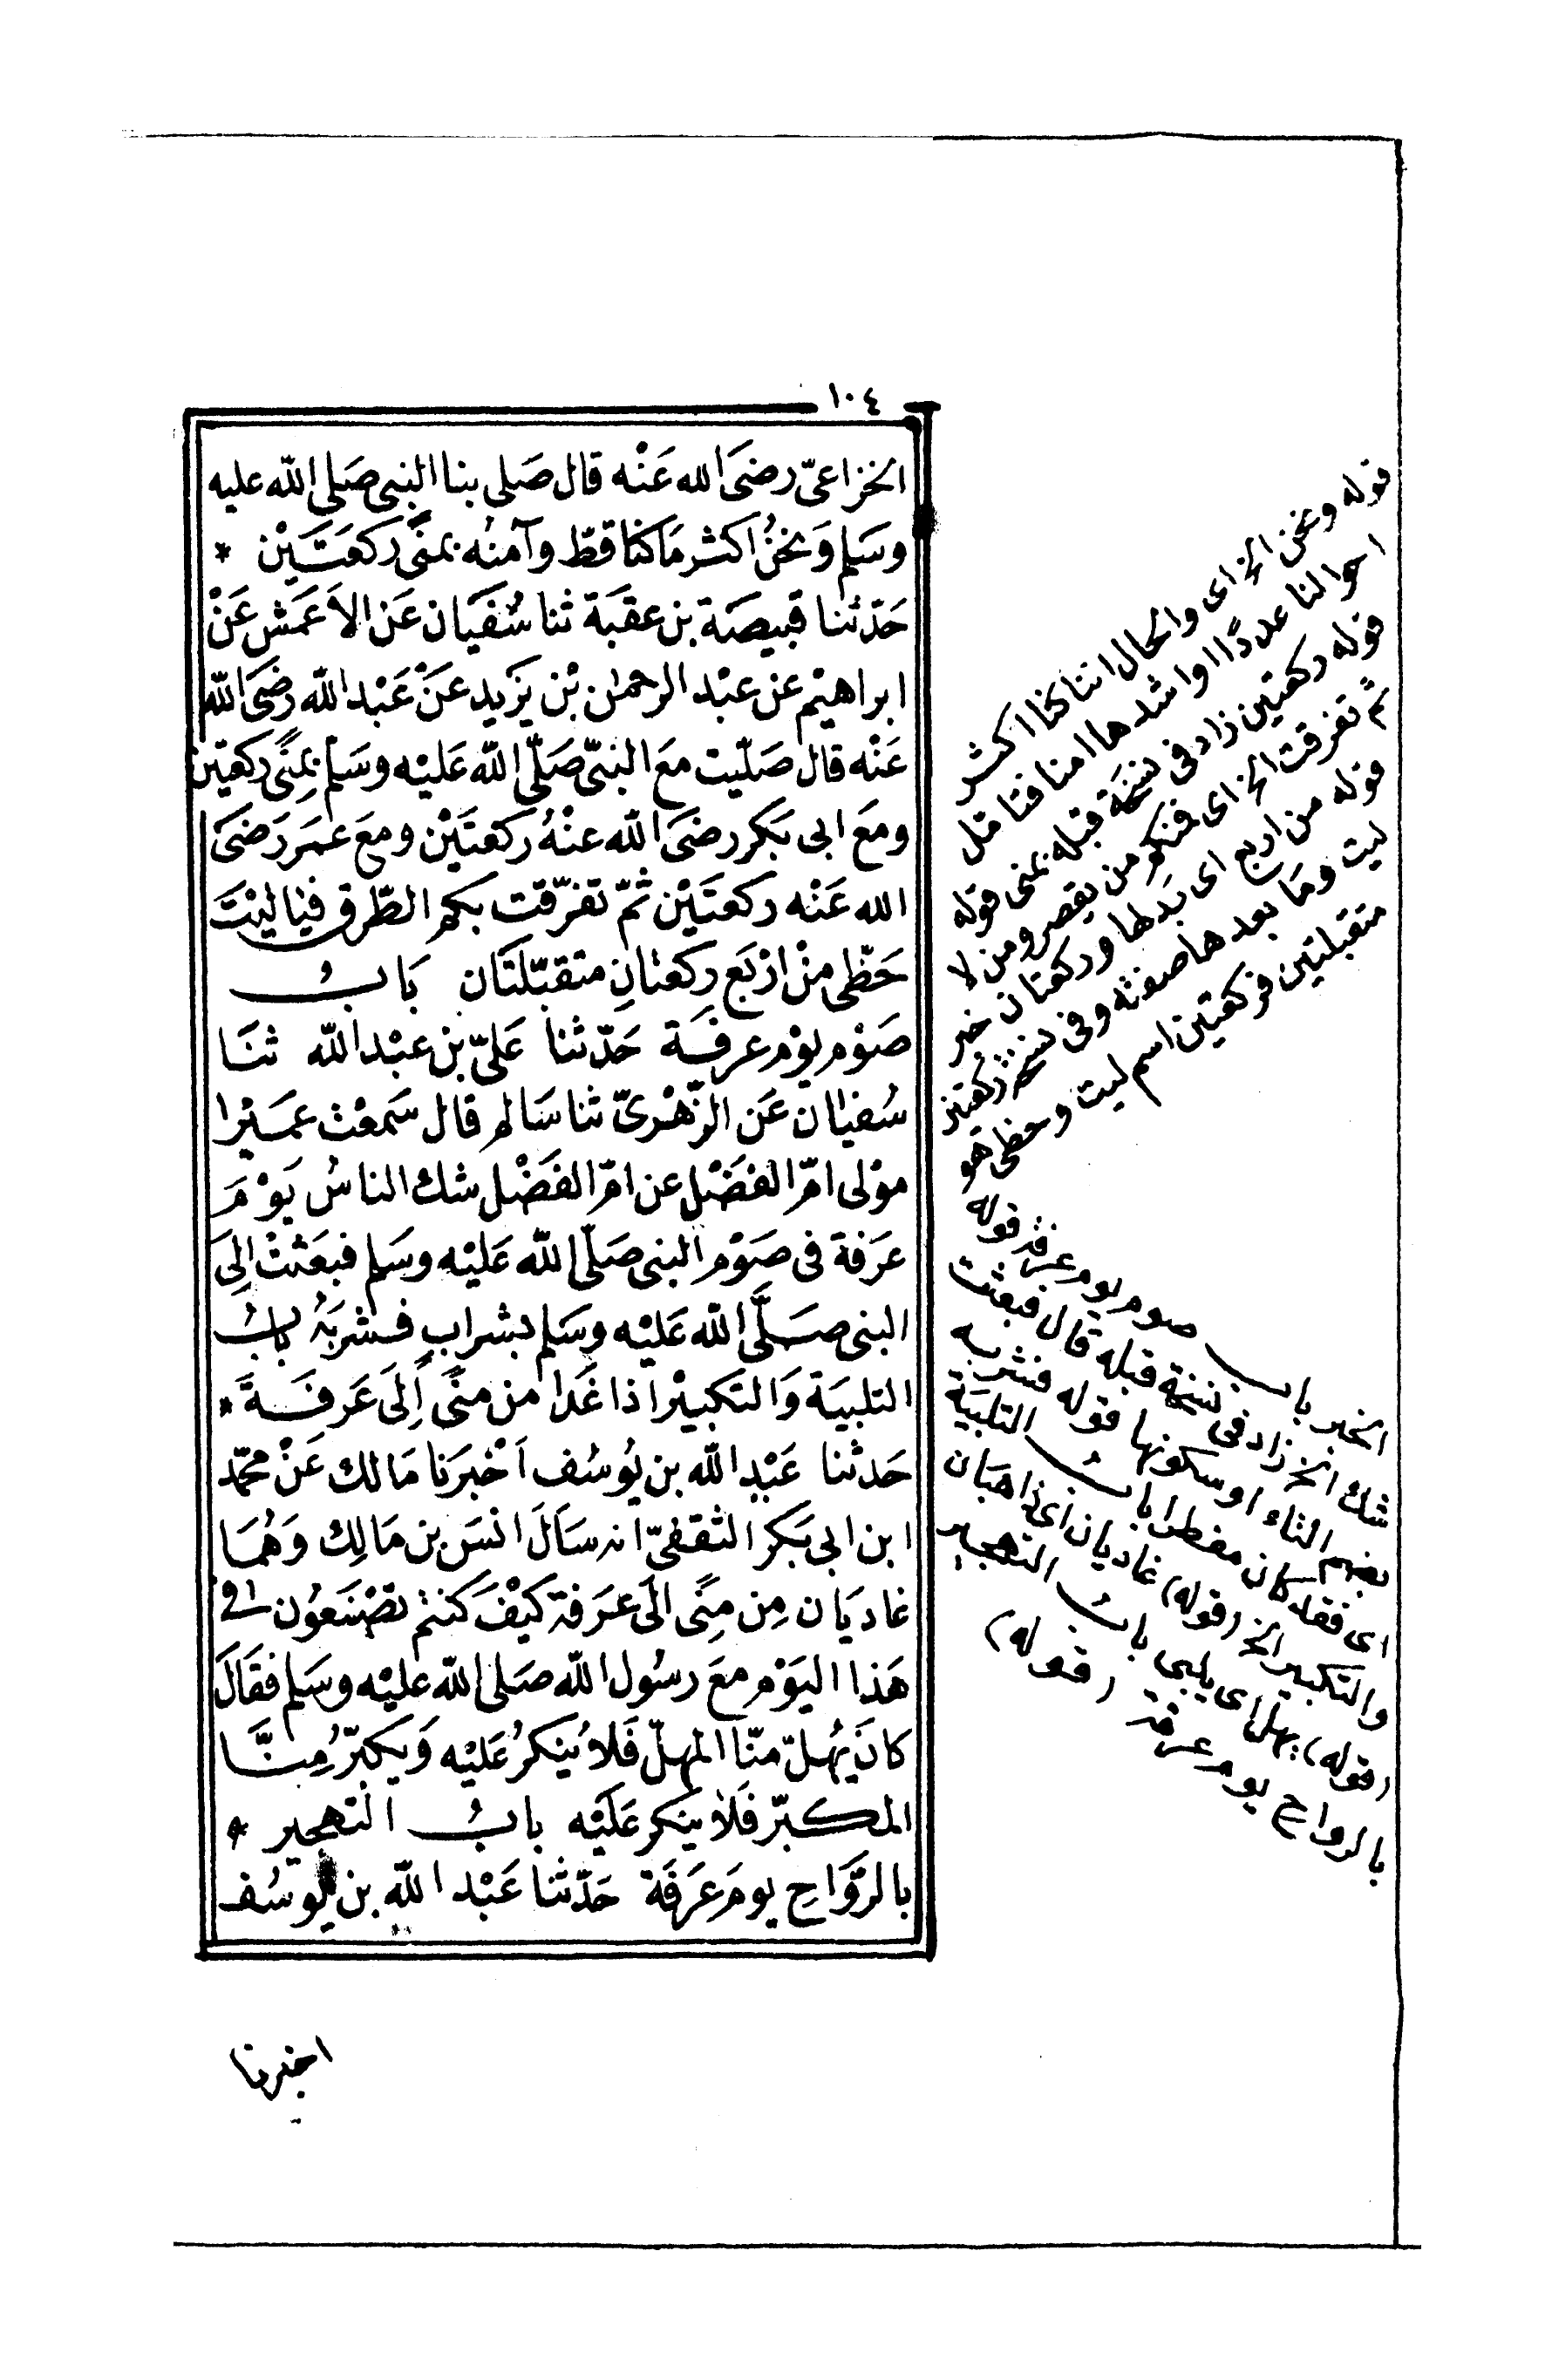 ١٠٤
الخزاعىّ رضىَ الله عَنْه قال صَلى بنا النبى صَلى الله عليه
وسَلم وَنحْنُ اكثر مَا كنا قطّ وآمنُه بمنًى ركعَتَيْن *
حَدّثنا قبيصَة بن عقبَة ثنا سُفيَان عَن الاَعمَش عَنْ
ابراهيْم عن عبْد الرحمٰن بْن يَزيد عَنْ عَبْد الله رضىَ الله
عَنْه قال صَلّيت معَ النبىّ صَلّى الله عَليْه وسَلم بِمنًى ركعتين
ومعَ ابى بَكر رضىَ الله عنْهُ ركعتَيْن ومعَ عمَر رَضىَ
الله عَنْه ركعتَيْن ثمّ تفرّقت بكم الطّرق فيَا ليْتَ
حَظّى منْ ارْبَع ركعتانِ متقبّلتَان بَابُ
صَوْم يوْم عرفَة حَدّثنا عَلىّ بن عبْد الله ثنَا
سُفيٰان عَن الزّهْرىّ ثنا سَالم قال سَمعْت عمَيْرا
موْلى امّ الفضْل عن امّ الفَضْل شك الناسُ يَوْمَ
عَرَفة فى صَوْم النبى صَلّى الله عَليْه وسَلم فبَعَثتُ اِلىَ
النبى صَلَّى الله عَليْه وسَلم بشرابٍ فشربَهُ بَابُ
التلبيَة وَالتكبيْر اذا غَدا من منًى اِلَى عَرفَةَ *
حَدثنا عَبْد الله بن يُوسُف اَخْبرَنا مَالك عَنْ محمّد
ابن ابى بَكر الثقفىّ انه سَأَلَ انسَ بن مَالِك وَهُمَا
غاديَان مِن مِنًى الَى عَرَفة كيْفَ كنتم تصْنَعوُن فى
هَذا اليَوْم معَ رسُول الله صَلى الله عليْه وسَلم فقَالَ
كانَ يُهلّ منّا المهلّ فَلاَ يُنكرُ عَليْه وَيكبّرُ مِنَّا
المكبّر فَلاَ ينكر عَليْه بابُ التهجير *
بالرَّوَاح يومَ عَرَفَة حَدّثنا عَبْد الله بن يُوسُف
اخبرنا
قوله ونحن الخ اى والحال اننا كنا اكثر
احوالنا عددًا او اشدها امنا فتامل
قوله ركعتين زاد فى نسخة قبله بمنى قوله
ثم تفرقت الخ اى فمنكم من يقصر ومن لا
قوله من اربع اى بدلها وركعتان خبر
ليت وما بعدها صفته وفى نسخة ركعتين
متقبلتين فركعتين اسم ليت وحظى هو
الخبر باب صوم يوم عرفة قوله
شك الخ زاد فى نسخة قبله قال فبعثت
بضم التاء او سكونها قوله فشربه
اى فقد كان مفطرا بابُ التلبيَة
والتكبير الخ (قوله) غاديان اى ذاهبان
(قوله) يهل اى يلبى بابُ التهجير
بالرواح يوم عرفة (قوله)